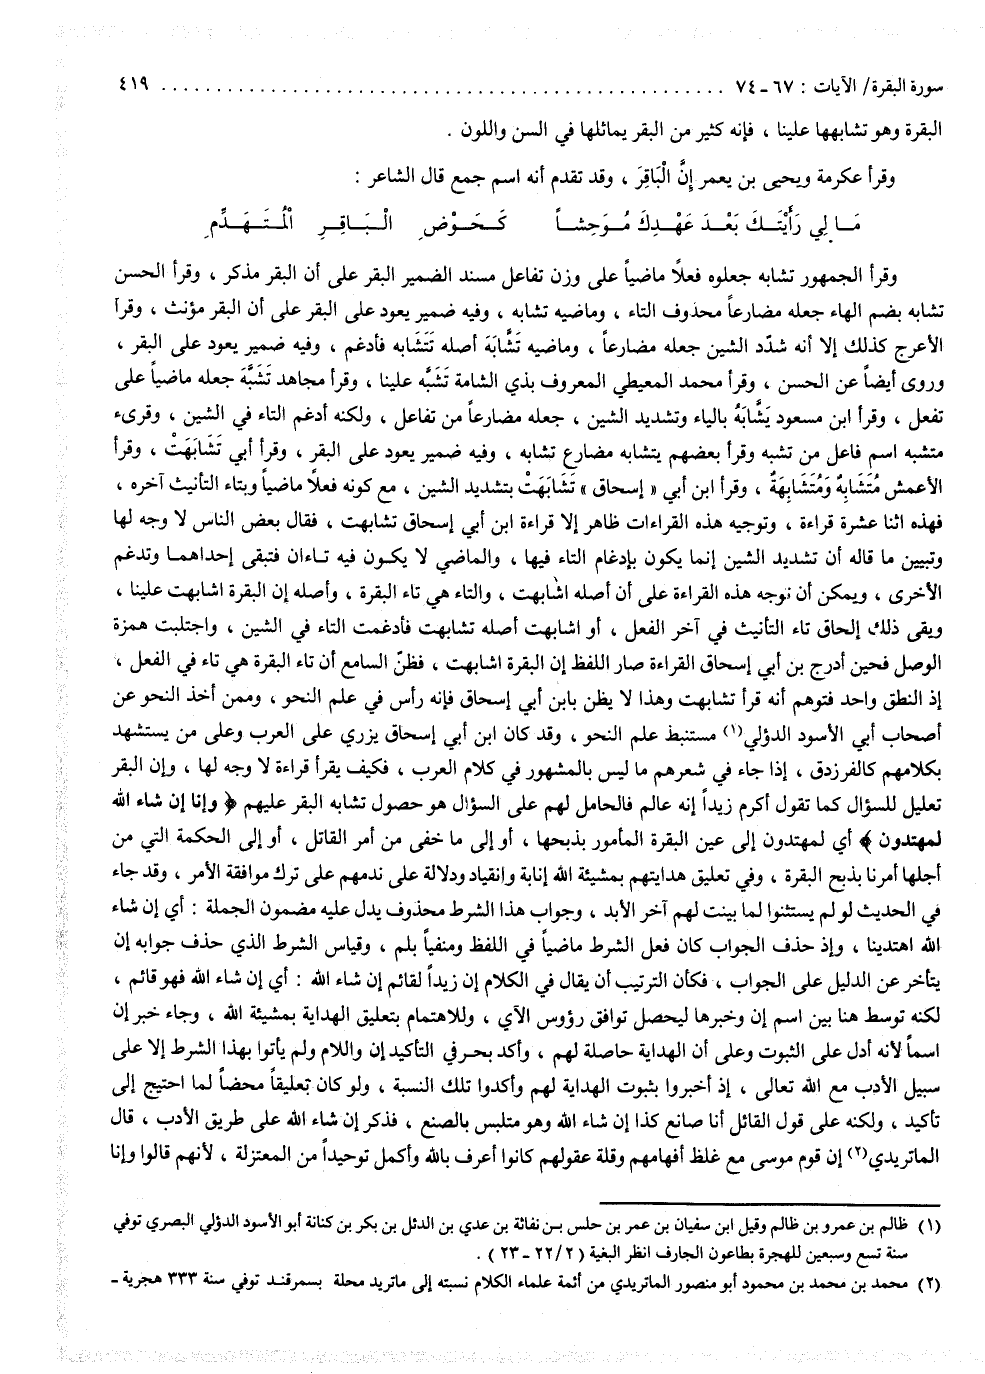 سورة البقرة/ الآيات : ٦٧ - ٧٤ . . . . . . . . . . . . . . . . . . . . . . . . . . . . . . . . . . . . . . . . ٤١٩
البقرة وهو تشابهها علينا ، فإنه كثير من البقر يماثلها في السن واللون .
وقرأ عكرمة ويحيى بن يعمر إِنَّ الْبَاقِرَ ، وقد تقدم أنه اسم جمع قال الشاعر :
مَـا لِي رَأَيْتُـكَ بَعْـدَ عَهْـدِكَ مُـوَحِشـاً كَـحَـوْضِ الْـبَـاقِـرِ الْمُـتَـهَـدِّمِ
وقرأ الجمهور تشابه جعلوه فعلاً ماضياً على وزن تفاعل مسند الضمير البقر على أن البقر مذكر ، وقرأ الحسن
تشابه بضم الهاء جعله مضارعاً محذوف التاء ، وماضيه تشابه ، وفيه ضمير يعود على البقر على أن البقر مؤنث ، وقرأ
الأعرج كذلك إلا أنه شدّد الشين جعله مضارعاً ، وماضيه تَشَّابَهَ أصله تَتَشَابه فأدغم ، وفيه ضمير يعود على البقر ،
وروى أيضاً عن الحسن ، وقرأ محمد المعيطي المعروف بذي الشامة تَشَّبَّه علينا ، وقرأ مجاهد تَشَّبَّهَ جعله ماضياً على
تفعل ، وقرأ ابن مسعود يَشَّابَهُ بالياء وتشديد الشين ، جعله مضارعاً من تفاعل ، ولكنه أدغم التاء في الشين ، وقرىء
متشبه اسم فاعل من تشبه وقرأ بعضهم يتشابه مضارع تشابه ، وفيه ضمير يعود على البقر ، وقرأ أبي تَشَابَهَتْ ، وقرأ
الأعمش مُتَشَابِهُ وَمُتَشَابِهَةٌ ، وقرأ ابن أبي « إسحاق » تَشَّابَهَتْ بتشديد الشين ، مع كونه فعلاً ماضياً وبتاء التأنيث آخره ،
فهذه اثنا عشرة قراءة ، وتوجيه هذه القراءات ظاهر إلا قراءة ابن أبي إسحاق تشابهت ، فقال بعض الناس لا وجه لها
وتبيين ما قاله أن تشديد الشين إنما يكون بإدغام التاء فيها ، والماضي لا يكـون فيه تـاءان فتبقى إحداهمـا وتدغم
الأخرى ، ويمكن أن نوجه هذه القراءة على أن أصله اشابهت ، والتاء هي تاء البقرة ، وأصله إن البقرة اشابهت علينا ،
ويقى ذلك إلحاق تاء التأنيث في آخر الفعل ، أو اشابهت أصله تشابهت فأدغمت التاء في الشين ، واجتلبت همزة
الوصل فحين أدرج بن أبي إسحاق القراءة صار اللفظ إن البقرة اشابهت ، فظنّ السامع أن تاء البقرة هي تاء في الفعل ،
إذ النطق واحد فتوهم أنه قرأ تشابهت وهذا لا يظن بابن أبي إسحاق فإنه رأس في علم النحو ، وممن أخذ النحو عن
أصحاب أبي الأسود الدؤلي(١) مستنبط علم النحو ، وقد كان ابن أبي إسحاق يزري على العرب وعلى من يستشهد
بكلامهم كالفرزدق ، إذا جاء في شعرهم ما ليس بالمشهور في كلام العرب ، فكيف يقرأ قراءة لا وجه لها ، وإن البقر
تعليل للسؤال كما تقول أكرم زيداً إنه عالم فالحامل لهم على السؤال هو حصول تشابه البقر عليهم ﴿ وإنا إن شاء الله
لمهتدون ﴾ أي لمهتدون إلى عين البقرة المأمور بذبحها ، أو إلى ما خفى من أمر القاتل ، أو إلى الحكمة التي من
أجلها أمرنا بذبح البقرة ، وفي تعليق هدايتهم بمشيئة الله إنابة وانقياد ودلالة على ندمهم على ترك موافقة الأمر ، وقد جاء
في الحديث لو لم يستثنوا لما بينت لهم آخر الأبد ، وجواب هذا الشرط محذوف يدل عليه مضمون الجملة : أي إن شاء
الله اهتدينا ، وإذ حذف الجواب كان فعل الشرط ماضياً في اللفظ ومنفياً بلم ، وقياس الشرط الذي حذف جوابه إن
يتأخر عن الدليل على الجواب ، فكأن الترتيب أن يقال في الكلام إن زيداً لقائم إن شاء الله : أي إن شاء الله فهو قائم ،
لكنه توسط هنا بين اسم إن وخبرها ليحصل توافق رؤوس الآي ، وللاهتمام بتعليق الهداية بمشيئة الله ، وجاء خبر إن
اسماً لأنه أدل على الثبوت وعلى أن الهداية حاصلة لهم ، وأكد بحرفي التأكيد إن واللام ولم يأتوا بهذا الشرط إلا على
سبيل الأدب مع الله تعالى ، إذ أخبروا بثبوت الهداية لهم وأكدوا تلك النسبة ، ولو كان تعليقاً محضاً لما احتيج إلى
تأكيد ، ولكنه على قول القائل أنا صانع كذا إن شاء الله وهو متلبس بالصنع ، فذكر إن شاء الله على طريق الأدب ، قال
الماتريدي(٢) إن قوم موسى مع غلظ أفهامهم وقلة عقولهم كانوا أعرف بالله وأكمل توحيداً من المعتزلة ، لأنهم قالوا وإنا
(١) ظالم بن عمرو بن ظالم وقيل ابن سفيان بن عمر بن حلس بـن نفاثة بن عدي بن الدئل بن بكر بن كنانة أبو الأسود الدؤلي البصري توفي
سنة تسع وسبعين للهجرة بطاعون الجارف انظر البغية ( ٢/ ٢٢ - ٢٣ ) .
(٢) محمد بن محمد بن محمود أبو منصور الماتريدي من أئمة علماء الكلام نسبته إلى ماتريد محلة بسمرقنـد توفي سنة ٣٣٣ هجرية -